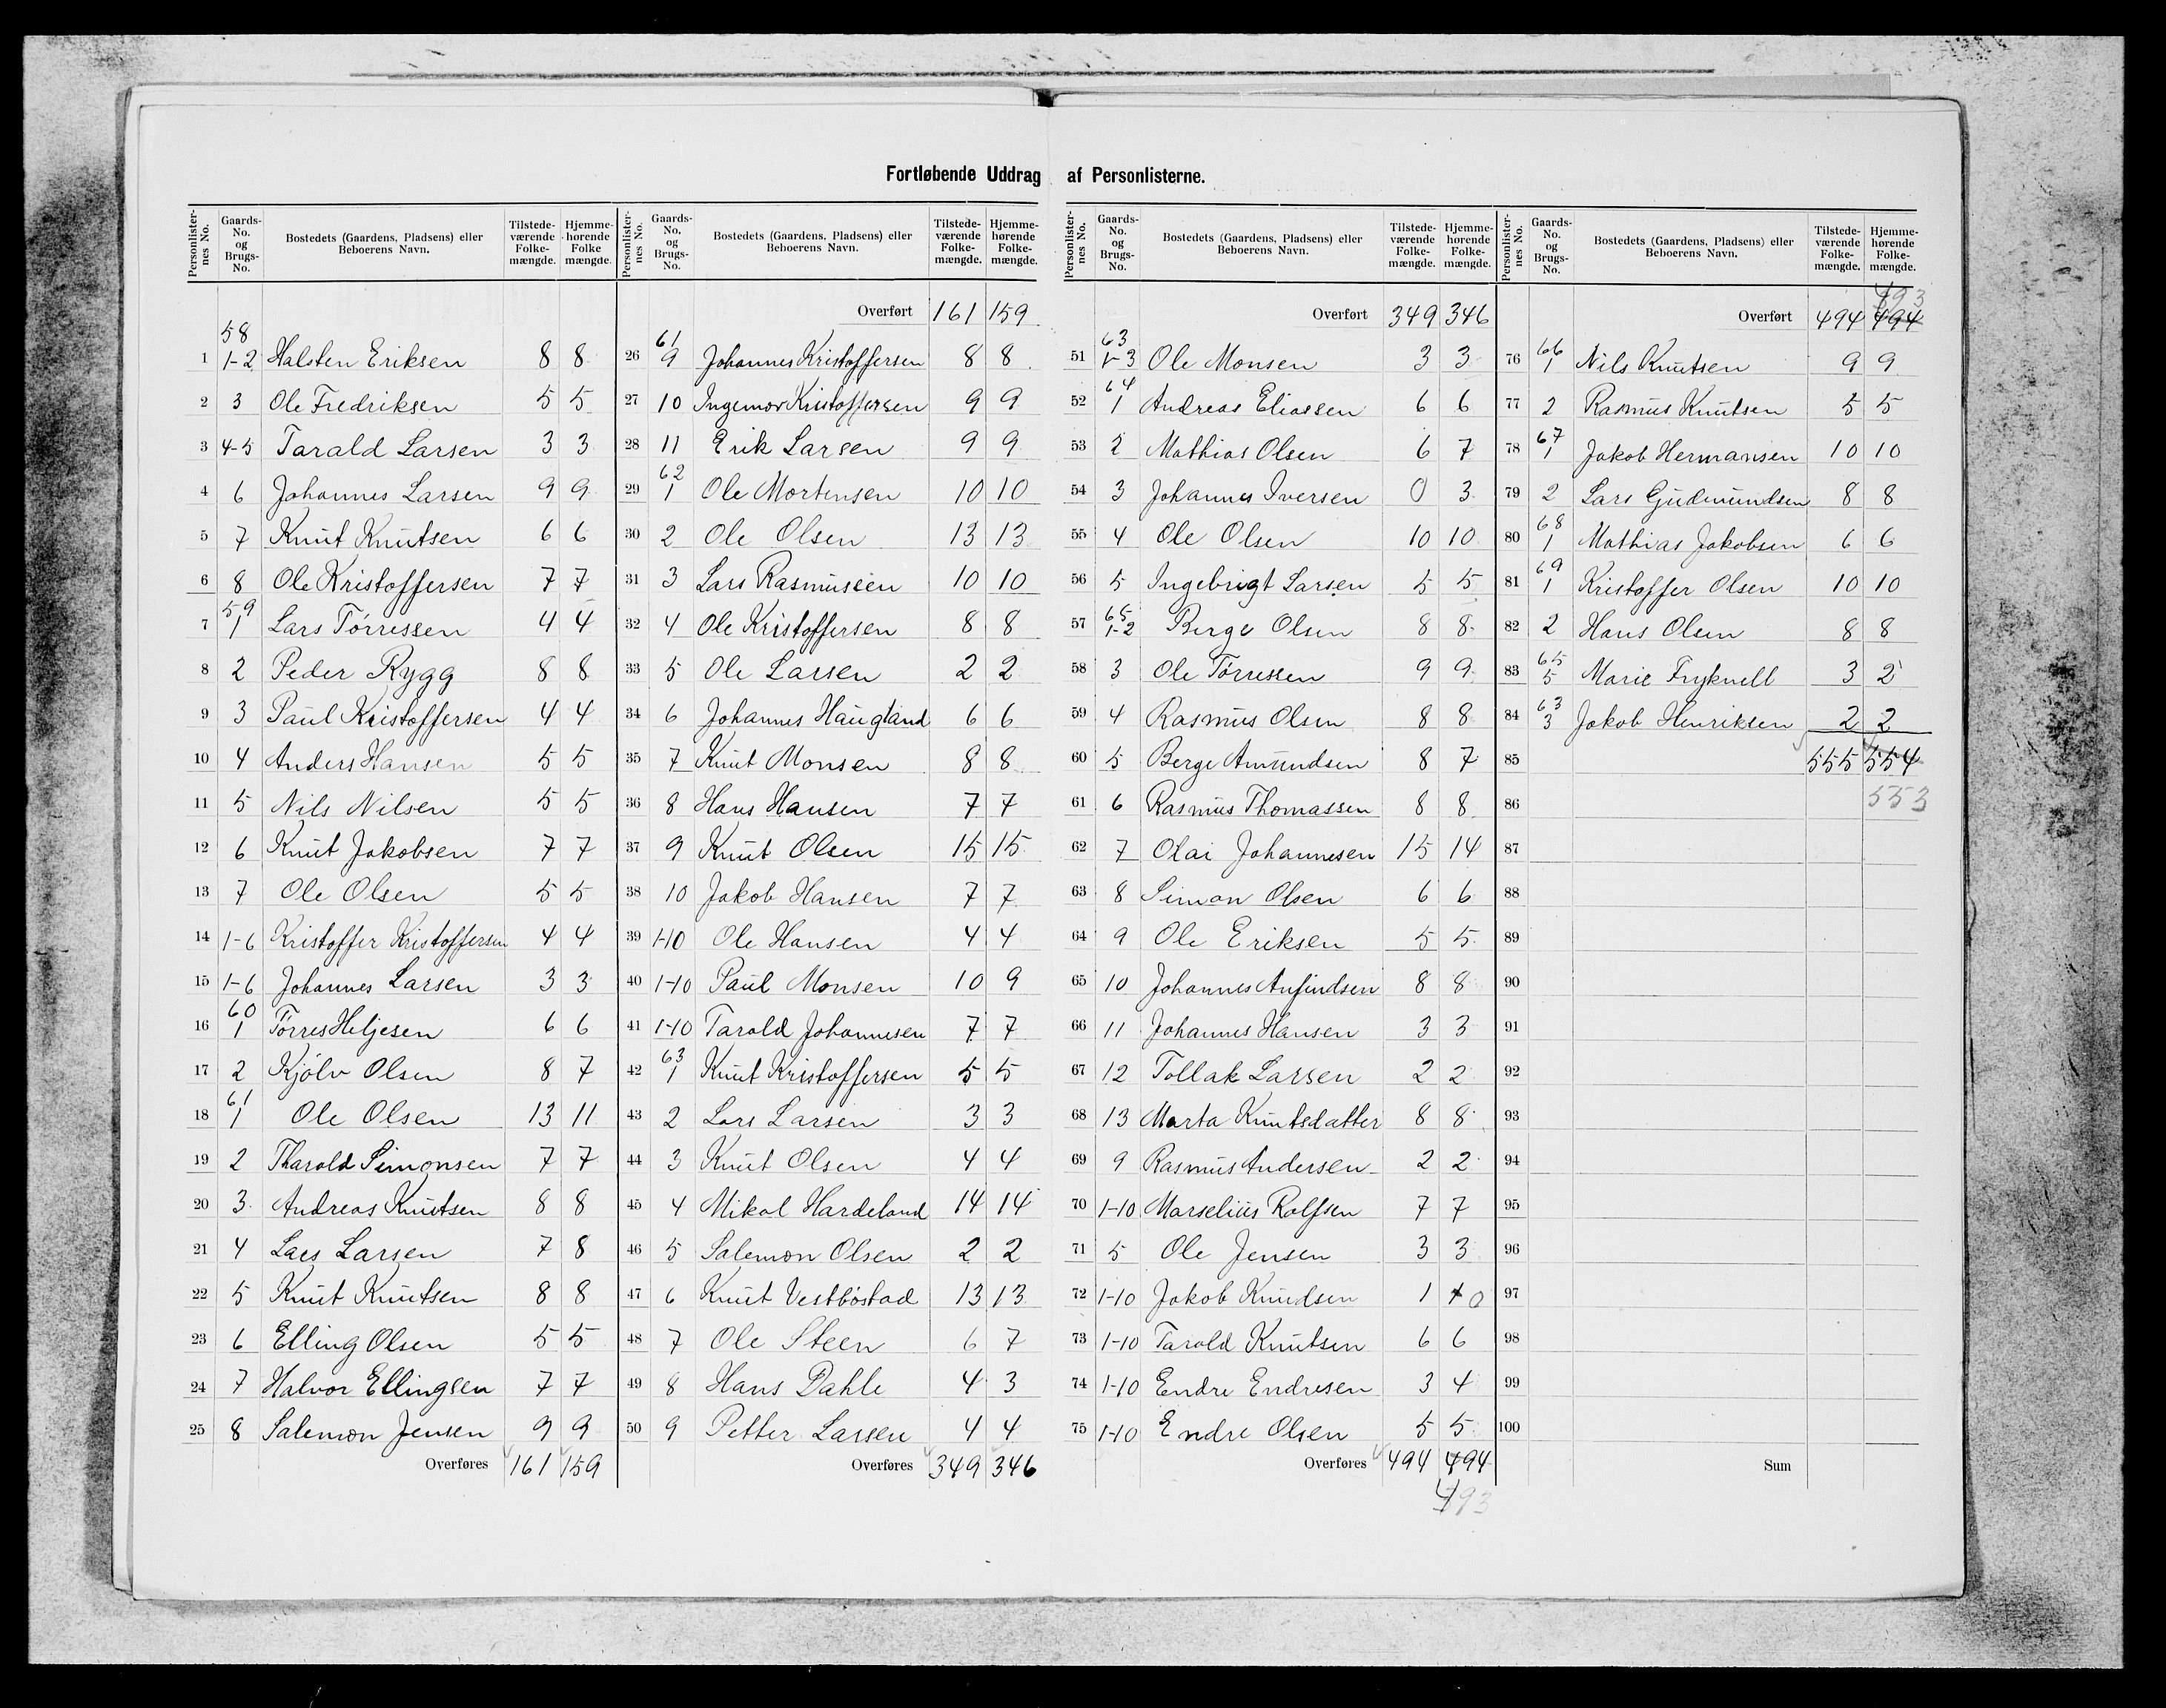 Fortløbende Uddrag af Personlisterne.
Personlister-nes No. | Gaards-No. og Brugs-No. | Bostedets (Gaardens, Pladsens) eller Beboerens Navn. | Tilstede-værende Folke-mængde. | Hjemme-hørende Folke mængde.
58
1 1-2 Halsten Eriksen 8 8
2 3 Ole Fredriksen 5 5
3 4-5 Tarald Larsen 3 3
4 6 Johannes Larsen 9 9
5 7 Knut Knutsen 6 6
6 8 Ole Kristoffersen 7 7
59
7 1 Lars Tørressen 4 4
8 2 Peder Rygg 8 8
9 3 Paul Kristoffersen 4 4
10 4 Anders Hansen 5 5
11 5 Nils Nilsen 5 5
12 6 Knut Jakobsen 7 7
13 7 Ole Olsen 5 5
14 1-6 Kristoffer Kristoffersen 4 4
15 1-6 Johannes Larsen 3 3
60
16 1 Tørres Heljesen 6 6
17 2 Kjølv Olsen 8 7
61
18 1 Ole Olsen 13 11
19 2 Tharald Simonsen 7 7
20 3 Andreas Knutsen 8 8
21 4 Lars Larsen 7 8
22 5 Knut Knutsen 8 8
23 6 Elling Olsen 5 5
24 7 Halvor Ellingsen 7 7
25 8 Salemon Jensen 9 9
Overføres 161 159
Personlister-nes No. | Gaards-No. og Brugs-No. | Bostedets (Gaardens, Pladsens) eller Beboerens Navn. | Tilstede-værende Folke-mængde. | Hjemme-hørende Folke-mængde.
Overført 161 159
61
26 9 Johannes Kristoffersen 8 8
27 10 Ingemar Kristoffersen 9 9
28 11 Erik Larsen 9 9
62
29 1 Ole Mortensen 10 10
30 2 Ole Olsen 13 13
31 3 Lars Rasmussen 10 10
32 4 Ole Kristoffersen 8 8
33 5 Ole Larsen 2 2
34 6 Johannes Haugland 6 6
35 7 Knut Monsen 8 8
36 8 Hans Hansen 7 7
37 9 Knut Olsen 15 15
38 10 Jakob Hansen 7 7
39 1-10 Ole Hansen 4 4
40 1-10 Paul Monsen 10 9
41 1-10 Tarald Johannesen 7 7
63
42 1 Knut Kristoffersen 5 5
43 2 Lars Larsen 3 3
44 3 Knut Olsen 4 4
45 4 Mikal Hardeland 14 14
46 5 Salemon Olsen 2 2
47 6 Knut Vestbøstad 13 13
48 7 Ole Steen 6 7
49 8 Hans Dahle 4 3
50 9 Petter Larsen 4 4
Overføres 349 346
Personlister-nes No. | Gaards-No. og Brugs-No. | Bostedets (Gaardens, Pladsens) eller Beboerens Navn. | Tilstede-værende Folke-mængde. | Hjemme-hørende Folke-mængde.
Overført 349 346
63
51 1-3 Ole Monsen 3 3
64
52 1 Andreas Eliassen 6 6
53 2 Mathias Olsen 6 7
54 3 Johannes Iversen 0 3
55 4 Ole Olsen 10 10
56 5 Ingebrigt Larsen 5 5
65
57 1-2 Berge Olsen 8 8
58 3 Ole Tørressen 9 9
59 4 Rasmus Olsen 8 8
60 5 Berge Amundsen 8 7
61 6 Rasmus Thomassen 8 8
62 7 Olai Johannesen 15 14
63 8 Simon Olsen 6 6
64 9 Ole Eriksen 5 5
65 10 Johannes Anfindsen 8 8
66 11 Johannes Hansen 3 3
67 12 Tollak Larsen 2 2
68 13 Marta Knutsdatter 8 8
69 9 Rasmus Andersen 2 2
70 1-10 Marselius Rolfsen 7 7
71 5 Ole Jensen 3 3
72 1-10 Jakob Knudsen 1 1 0
73 1-10 Tarald Knutsen 6 6
74 1-10 Endre Endresen 3 4
75 1-10 Endre Olsen 5 5
Overføres 494 494
493
Personlister-nes No. | Gaards-No. og Brugs-No. | Bostedets (Gaardens, Pladsens) eller Beboerens Navn. | Tilstede-værende Folke-mængde. | Hjemme-hørende Folke-mængde.
493
Overført 494 494
66
76 1 Nils Knutsen 9 9
77 2 Rasmus Knutsen 5 5
67
78 1 Jakob Hermansen 10 10
79 2 Lars Gudmundsen 8 8
68
80 1 Mathias Jakobsen 6 6
69
81 1 Kristoffer Olsen 10 10
82 2 Hans Olsen 8 8
65
83 5 Marie Fryknell 3 2
63
84 3 Jakob Henriksen 2 2
85 555 554
86 553
87
88
89
90
91
92
93
94
95
96
97
98
99
100
Sum